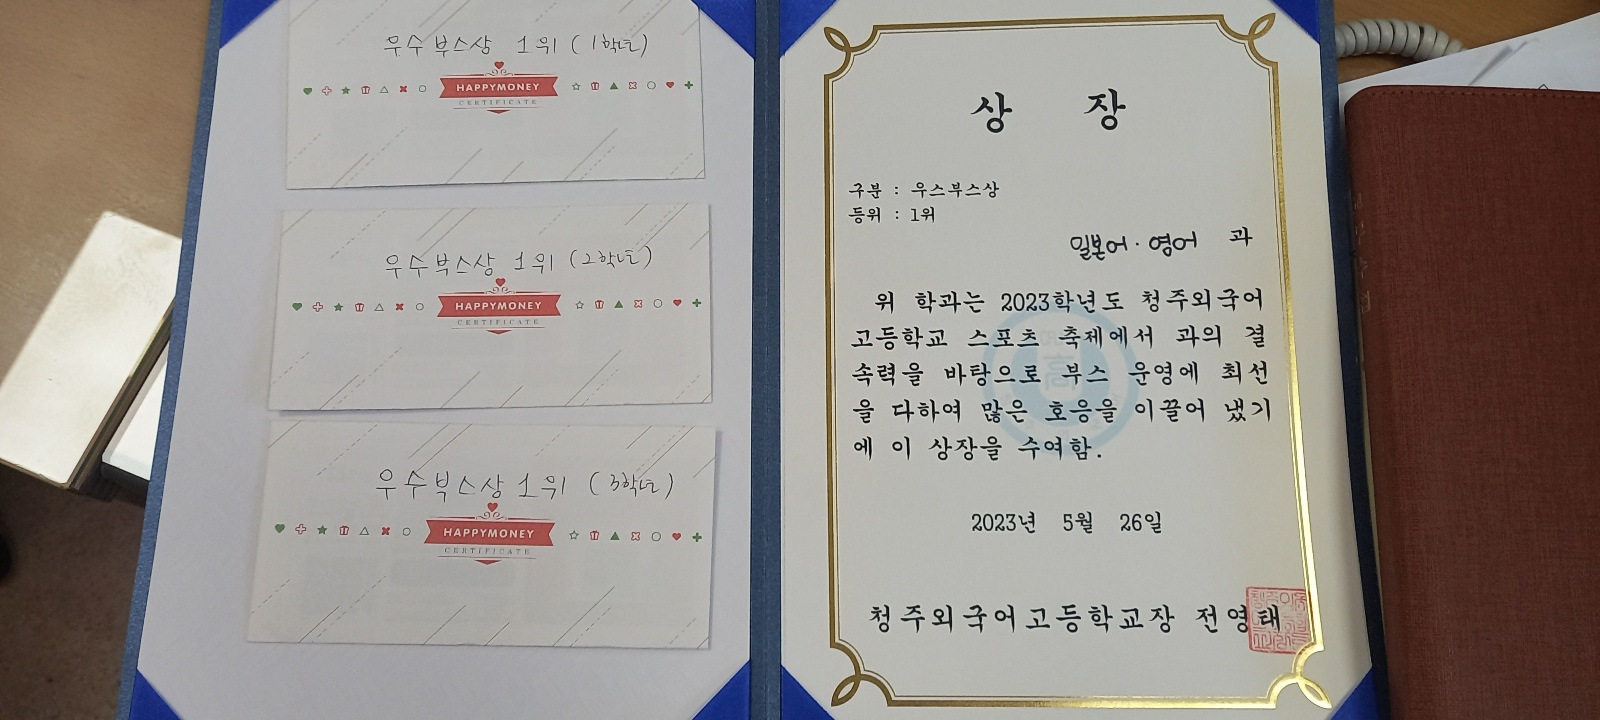 우수부스상 1위 (1학년)
HAPPYMONEY
CERTIFICATE
우수부스상 1위 (2학년)
HAPPYMONEY
CERTIFICATE
우수부스상 1위 (3학년)
HAPPYMONEY
CERTIFICATE
상 장
구분 : 우스부스상
등위 : 1위
일본어·영어 과
위 학과는 2023학년도 청주외국어
고등학교 스포츠 축제에서 과의 결
속력을 바탕으로 부스 운영에 최선
을 다하여 많은 호응을 이끌어 냈기
에 이 상장을 수여함.
2023년 5월 26일
청주외국어고등학교장 전영태